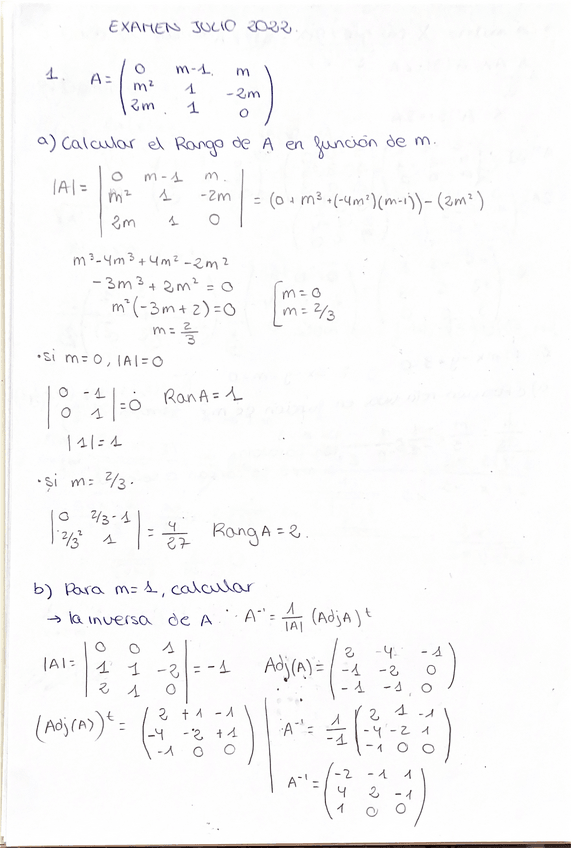 EXAMEN JULIO 2022.
1. A = ( 0 m-1 m
m² 1 -2m
2m 1 0 )
a) Calcular el Rango de A en función de m.
|A| = | 0 m-1 m
m² 1 -2m
2m 1 0 | = (0 + m³ + (-4m²)(m-1)) - (2m²)
m³-4m³+4m²-2m²
-3m³+2m² = 0
m²(-3m+2) = 0 [ m=0
m = 2/3 m = 2/3
·si m=0, |A|=0
| 0 -1
0 1 | = 0 Ran A = 1
|1| = 1
·si m= 2/3.
| 0 2/3-1
2/3² 1 | = 4/27 Rang A = 2.
b) Para m=1, calcular
→ la inversa de A · A⁻¹ = 1/|A| (Adj A)ᵗ
|A| = | 0 0 1
1 1 -2
2 1 0 | = -1 Adj(A) = ( 2 -4 -1
-1 -2 0
-1 -1 0 )
(Adj(A))ᵗ = ( 2 +1 -1
-4 -2 +1
-1 0 0 )
A⁻¹ = 1/-1 ( 2 1 -1
-4 -2 1
-1 0 0 )
A⁻¹ = ( -2 -1 1
4 2 -1
1 0 0 )